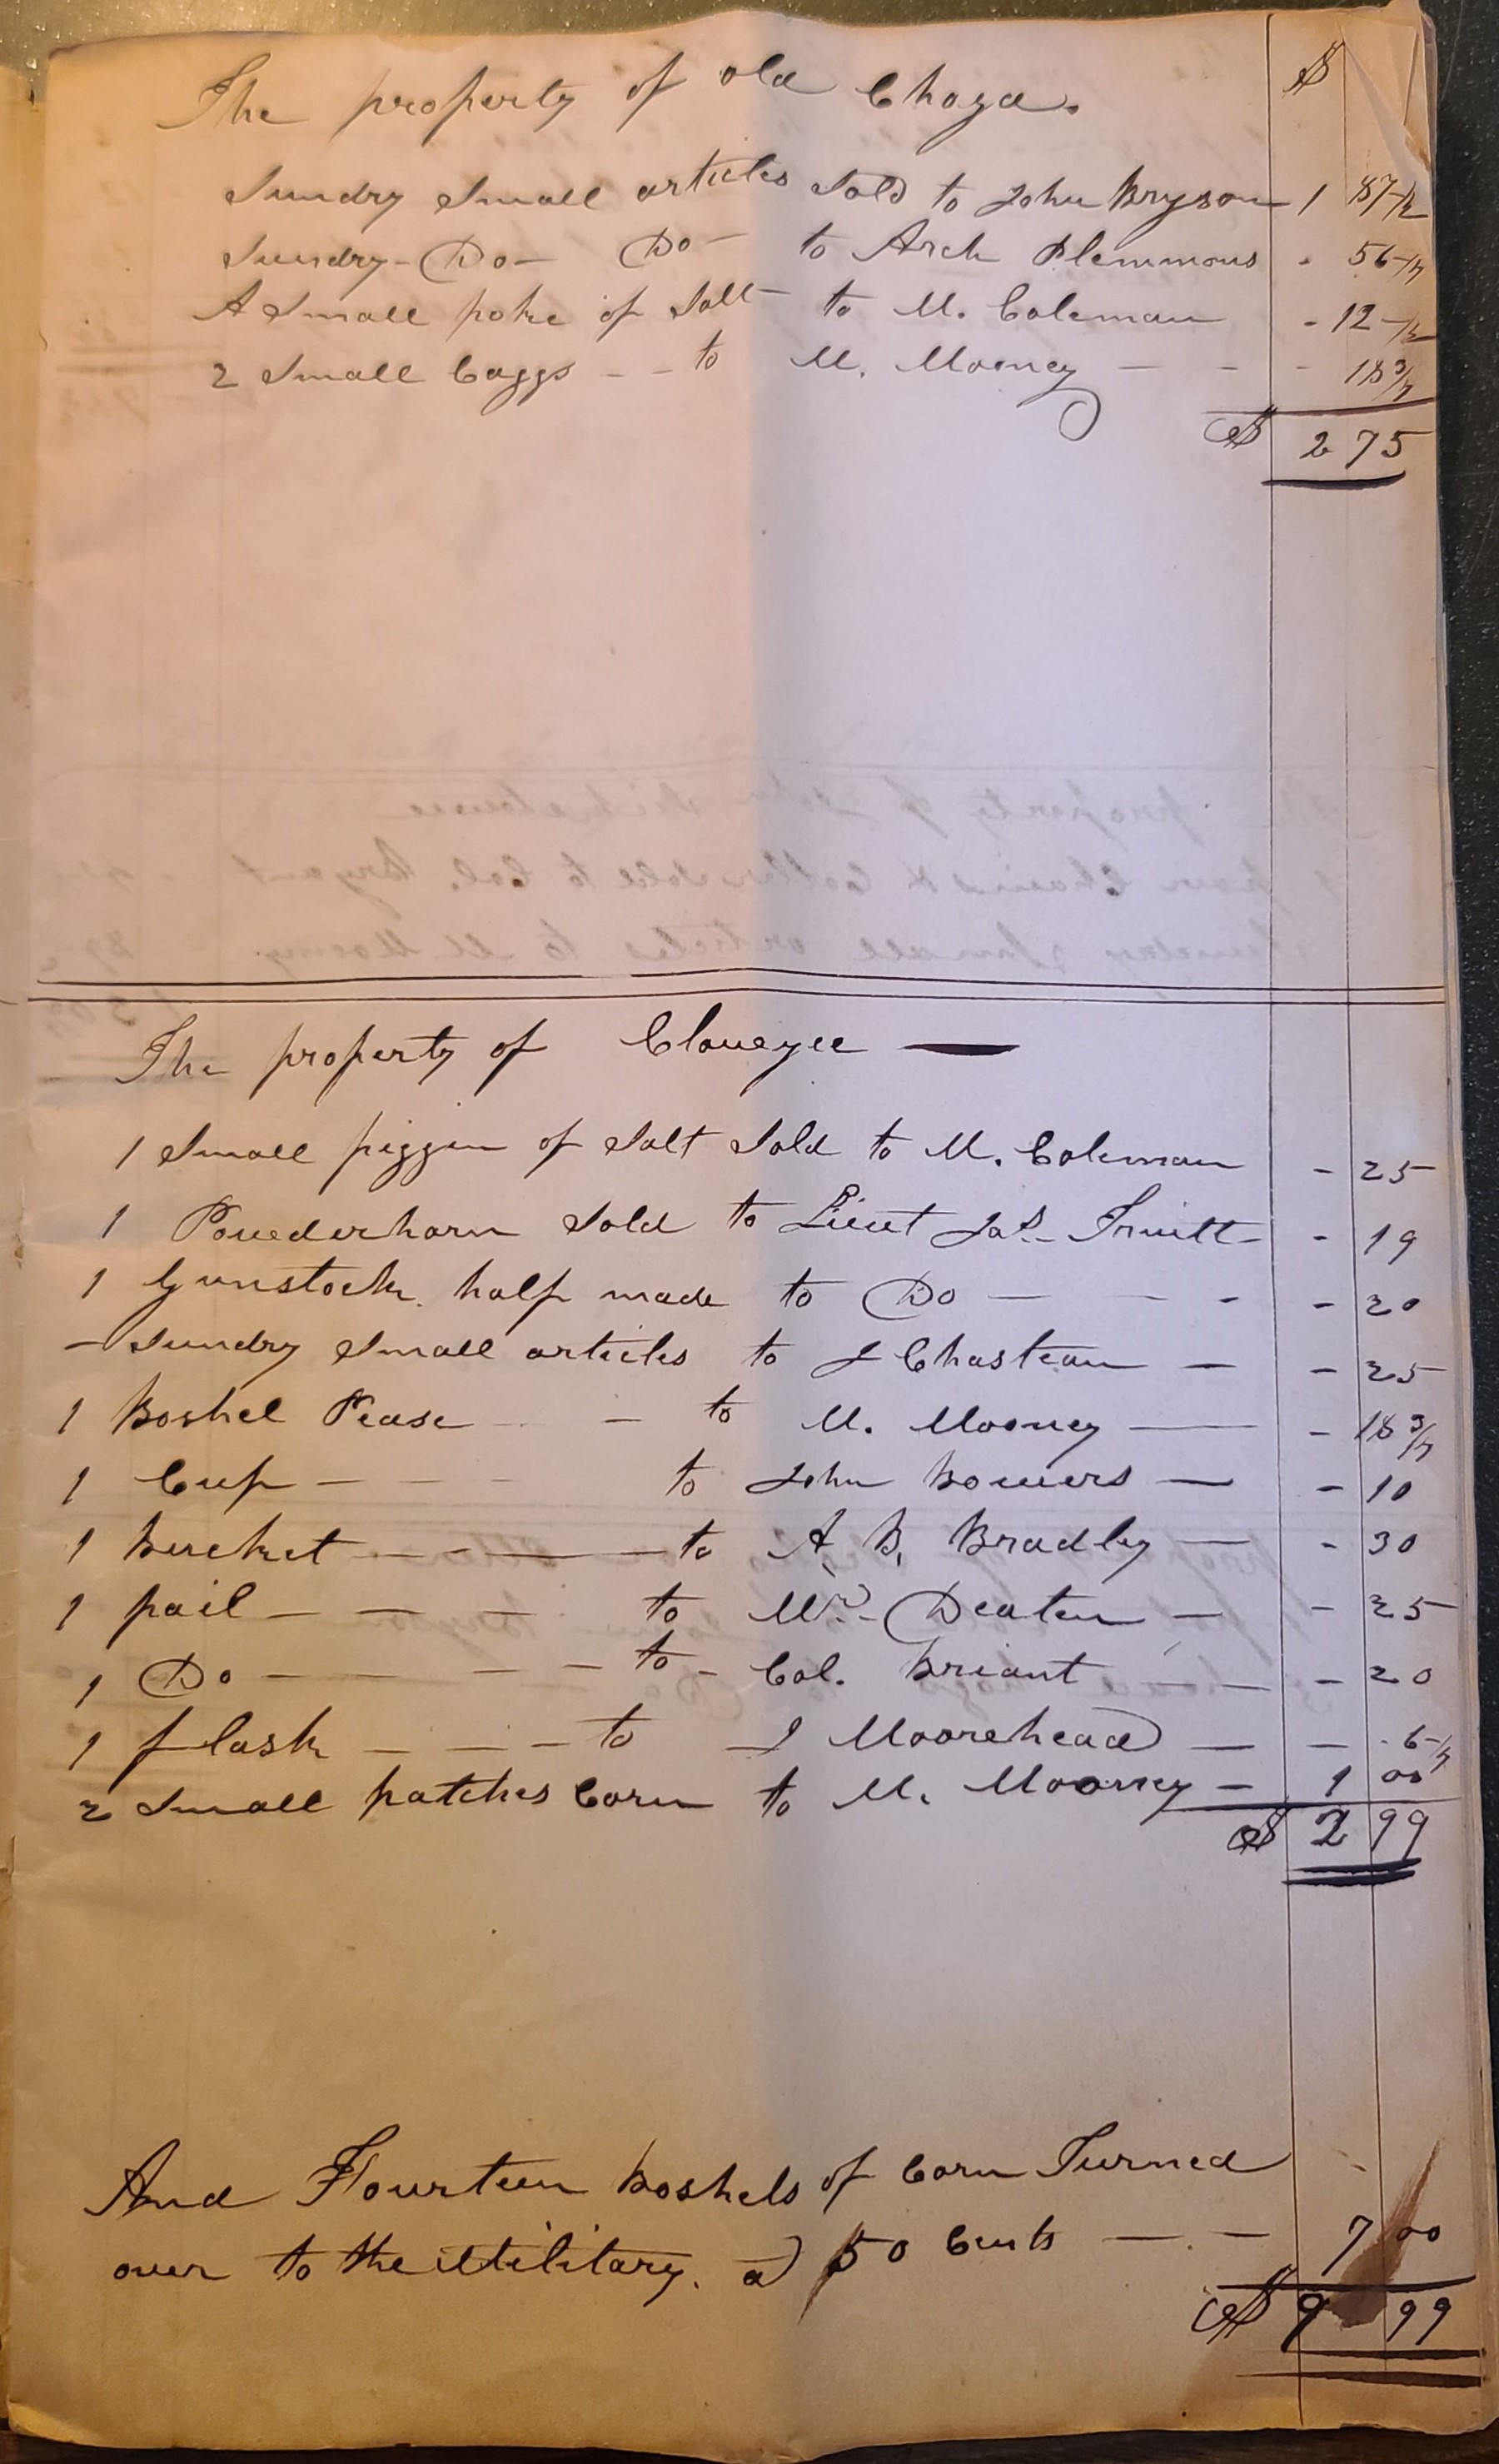 The property of old Choga. $
Sundry Small articles Sold to John Bryson 1 87 1/2
Sundry - Do - Do - to Arch Plemmons - 56 1/4
A Small poke of Salt - to M. Coleman - 12 1/2
2 Small baggs - - to M. Mooney - - - 18 3/4
$ 2 75
The property of Cloueyee —
1 Small piggin of Salt Sold to M. Coleman - 25
1 Powderhorn Sold to Lieut Jas. Truitt - - 19
1 Gunstock half made to Do — - - - 20
- Sundry Small articles to J Chasteau — - 25
1 Boshel Pease - - to M. Mooney — - 18 3/4
1 Cup - - - to John Bowers — - 10
1 Bucket - - — to A. B. Bradley — - 30
1 pail - - - to Mr. Deaten - - 25
1 Do - - - - to - Col. Briant - - - 20
1 flask - - - to J Moorehead - - 6 1/4
2 Small patches Corn to M. Mooney - 1 00
$ 2 99
And Fourteen Boshels of Corn Turned
over to the Military. @ 50 Cents — - 7 00
$ 9 99